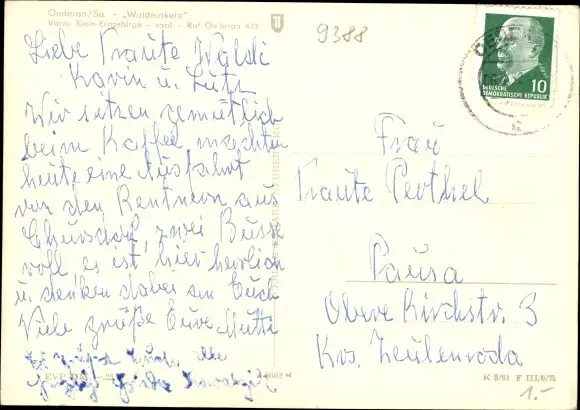 Oederan/Sa. - „Waldeinkehr"
Vorm. Klein-Erzgebirge - Ruf Oederan
9388
10
DEUTSCHE
DEMOKRATISCHE REPUBLIK
Liebe Traute Waldi
Karin u. Lutz
Wir sitzen gemütlich
beim Kaffee, machten
heute eine Ausfahrt
von den Rentnern aus
Chursdorf, zwei Busse
voll, es ist hier herrlich
u. denken dabei an Euch
Viele grüße Eure Mutti
Frau
Traute Perthel
Pausa
Obere Kirchstr. 3
Krs. Zeulenroda
K 5/61 F III/6/75
1.-